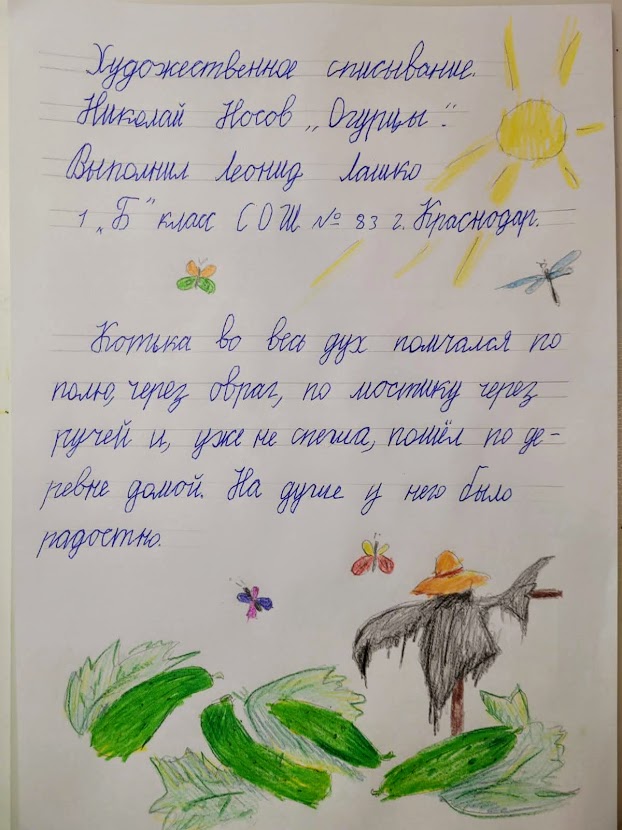 Художественное списывание.
Николай Носов „Огурцы".
Выполнил Леонид Лашко
1 „Б" класс СОШ № 83 г. Краснодар.
Котька во весь дух помчался по
полю, через овраг, по мостику через
ручей и, уже не спеша, пошёл по де-
ревне домой. На душе у него было
радостно.